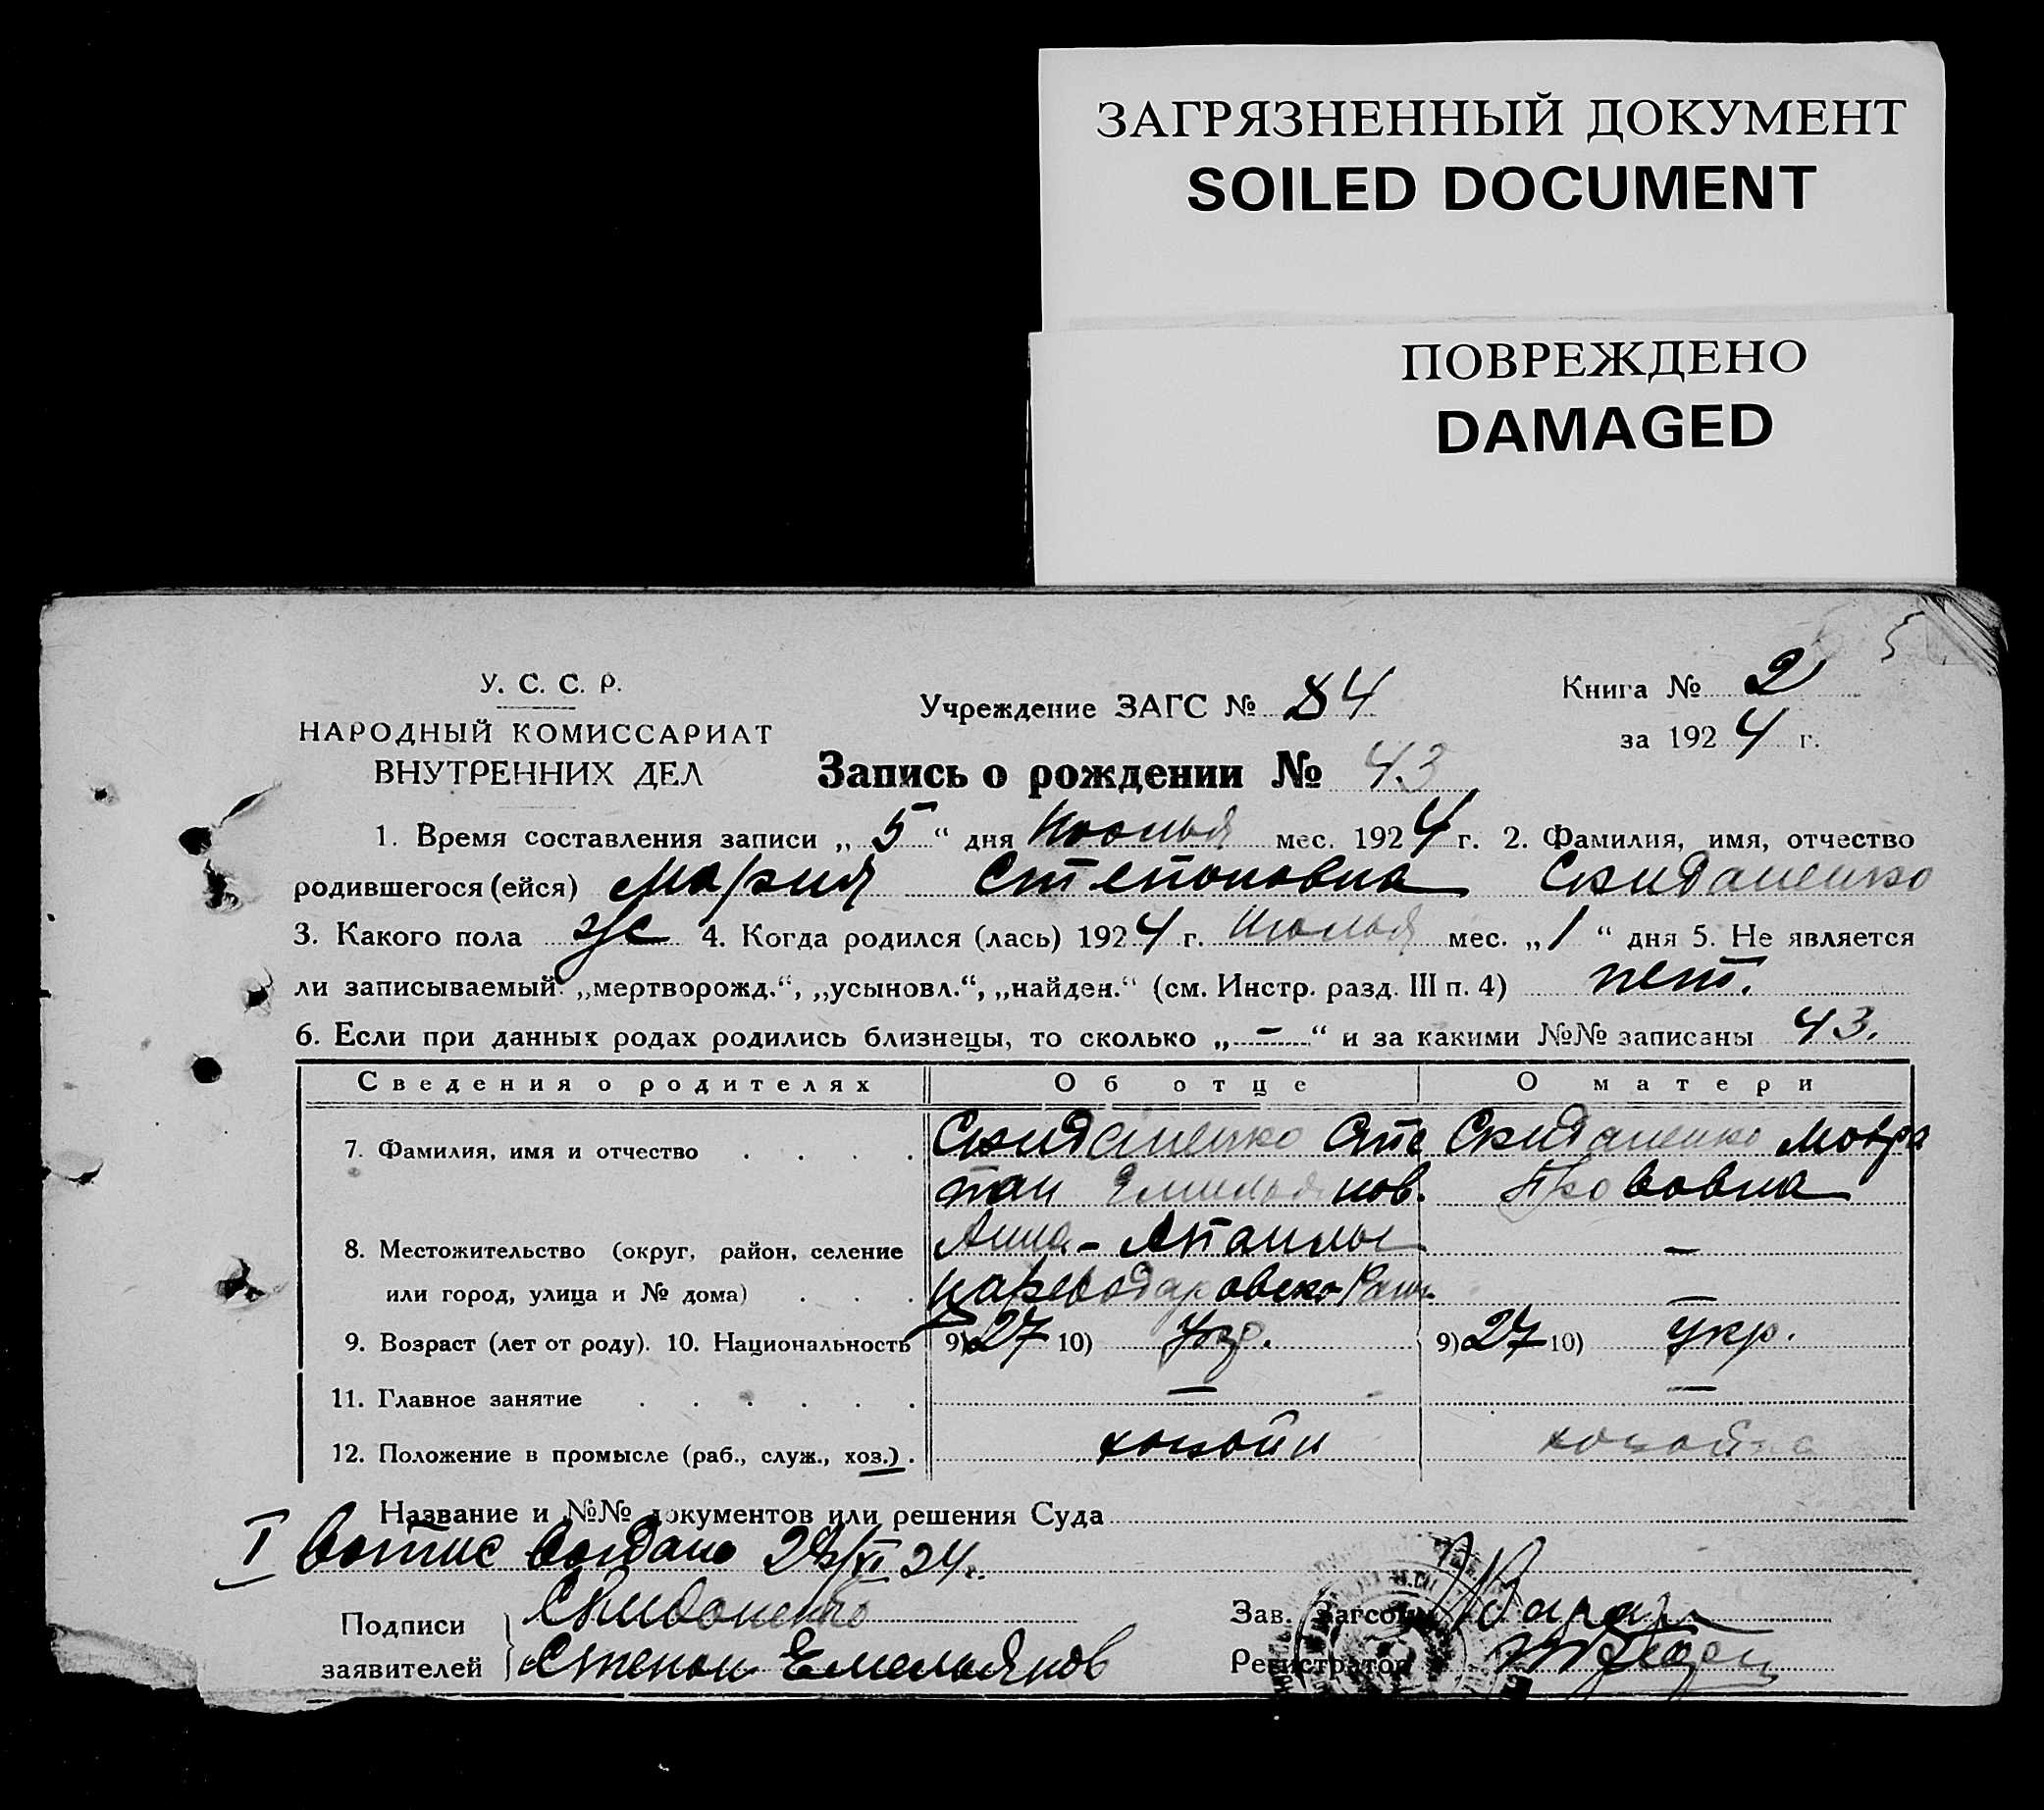 ЗАГРЯЗНЕННЫЙ ДОКУМЕНТ
SOILED DOCUMENT
ПОВРЕЖДЕНО
DAMAGED
5
У. С. С. Р.
НАРОДНЫЙ КОМИССАРИАТ
ВНУТРЕННИХ ДЕЛ
Учреждение ЗАГС № 84
Книга № 2
за 1924 г.
Запись о рождении № 43
1. Время составления записи „5“ дня Июлья мес. 1924 г. 2. Фамилия, имя, отчество
родившегося (ейся) Мария Степоновна Скиданенко
3. Какого пола ж 4. Когда родился (лась) 1924 г. Июлья мес. „1“ дня 5. Не является
ли записываемый: „мертворожд.“, „усыновл.“, „найден.“ (см. Инстр. разд. III п. 4) нет.
6. Если при данных родах родились близнецы, то сколько „-“ и за какими №№ записаны 43.
Сведения о родителях Об отце О матери
7. Фамилия, имя и отчество Скиданенко Сте Скиданенко Мовра
пан Емильянов.
8. Местожительство (округ, район, селение Анна- -
или город, улица и № дома) -
9. Возраст (лет от роду). 10. Национальность 9) 27 10) Укр. 9) 27 10) Укр.
11. Главное занятие - -
12. Положение в промысле (раб., служ., хоз.) хозяйн хозяйка
Название и №№ документов или решения Суда
I 24 г.
Подписи заявителей Скиданенко
Степан Емельянов
Зав. Загсом
Регистратор